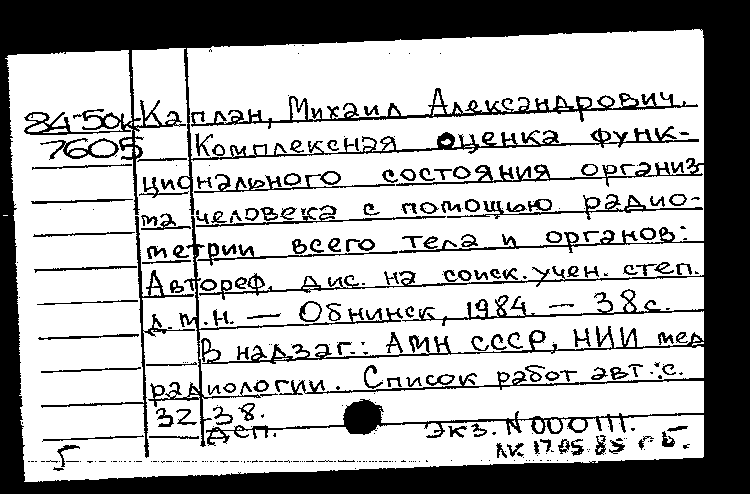 84-50к- Каплан, Михаил Александрович.
7605 Комплексная оценка функ-
ционального состояния организ-
ма человека с помощью радио-
метрии всего тела и органов:
Автореф. дис. на соиск. учен. степ.
д.м.н. — Обнинск, 1984. — 38 с.
В надзаг.: АМН СССР, НИИ мед
радиологии. Список работ авт.: с.
32-38.
Дсп. Экз. N 000111.
5 ЛК 17.05.85 г Б.